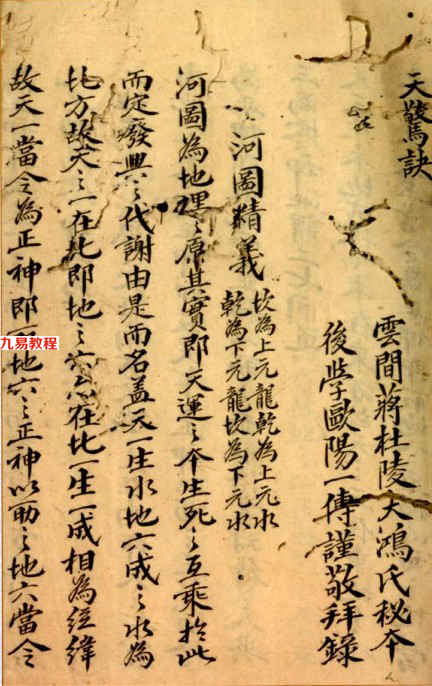 天驚訣
雲間蔣杜陵大鴻氏秘本
後學歐陽一傳謹敬拜錄
河圖精義
坎為上元龍乾為上元水
乾為下元龍坎為下元水
河圖為地理之原其實即天運之本生死之互乘於此
而定廢興之代謝由是而名盖天一生水地六成之水為
北方故天之一在北即地之六亦在北一生一成相為經緯
故天一當令為正神即以地六之正神以助之地六當令
九易教程